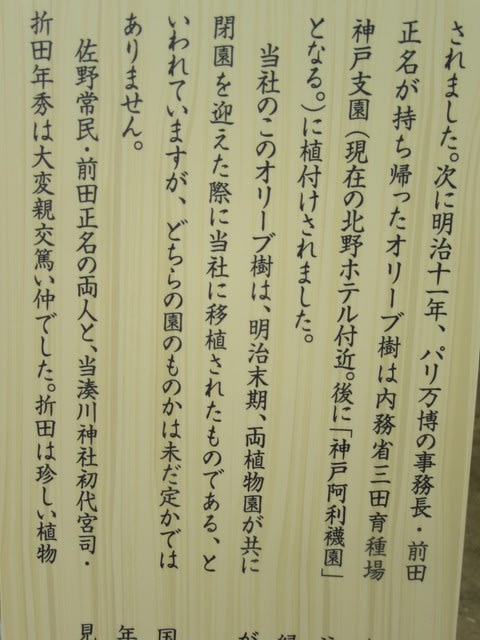 されました。次に明治十一年、パリ万博の事務長・前田
正名が持ち帰ったオリーブ樹は内務省三田育種場
神戸支園（現在の北野ホテル付近。後に「神戸阿利襪園」
となる。）に植付けされました。
当社のこのオリーブ樹は、明治末期、両植物園が共に
閉園を迎えた際に当社に移植されたものである、と
いわれていますが、どちらの園のものかは未だ定かでは
ありません。
佐野常民・前田正名の両人と、当湊川神社初代宮司・
折田年秀は大変親交篤い仲でした。折田は珍しい植物
が
国
年
見